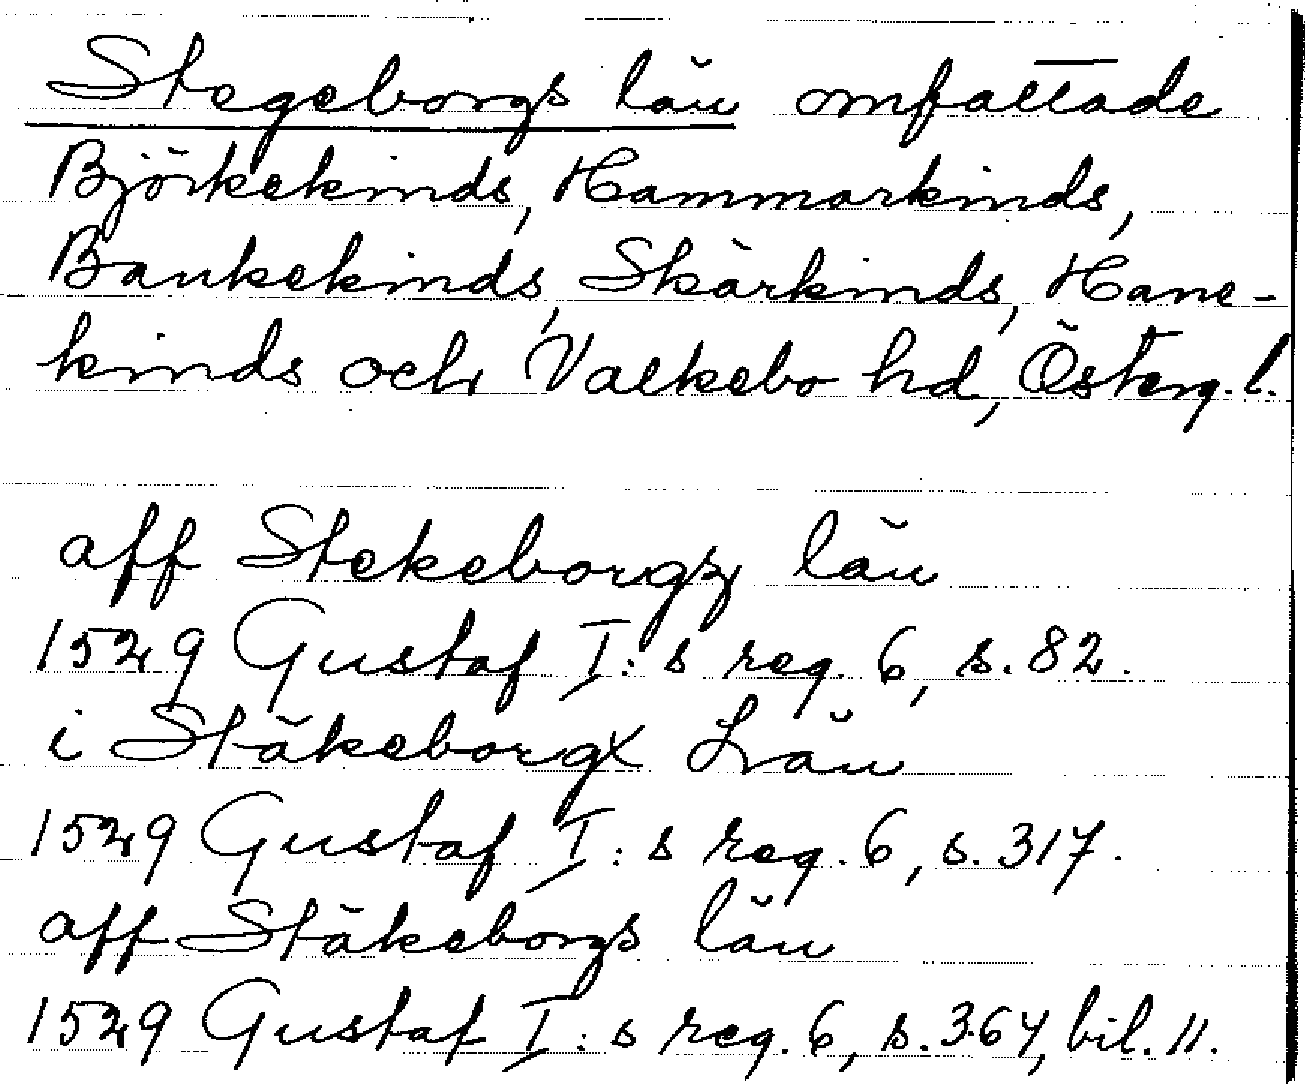 Stegeborgs län omfattade
Björkekinds, Hammarkinds,
Bankekinds, Skärkinds, Hane-
kinds och Valkebo hd, Österg. l.
aff Stekeborgz län
1529 Gustaf I:s reg. 6, s. 82.
i Stäkeborgx Län
1529 Gustaf I:s reg. 6, s. 317.
aff Stäkeborgs län
1529 Gustaf I:s reg. 6, s. 364, bil. 11.